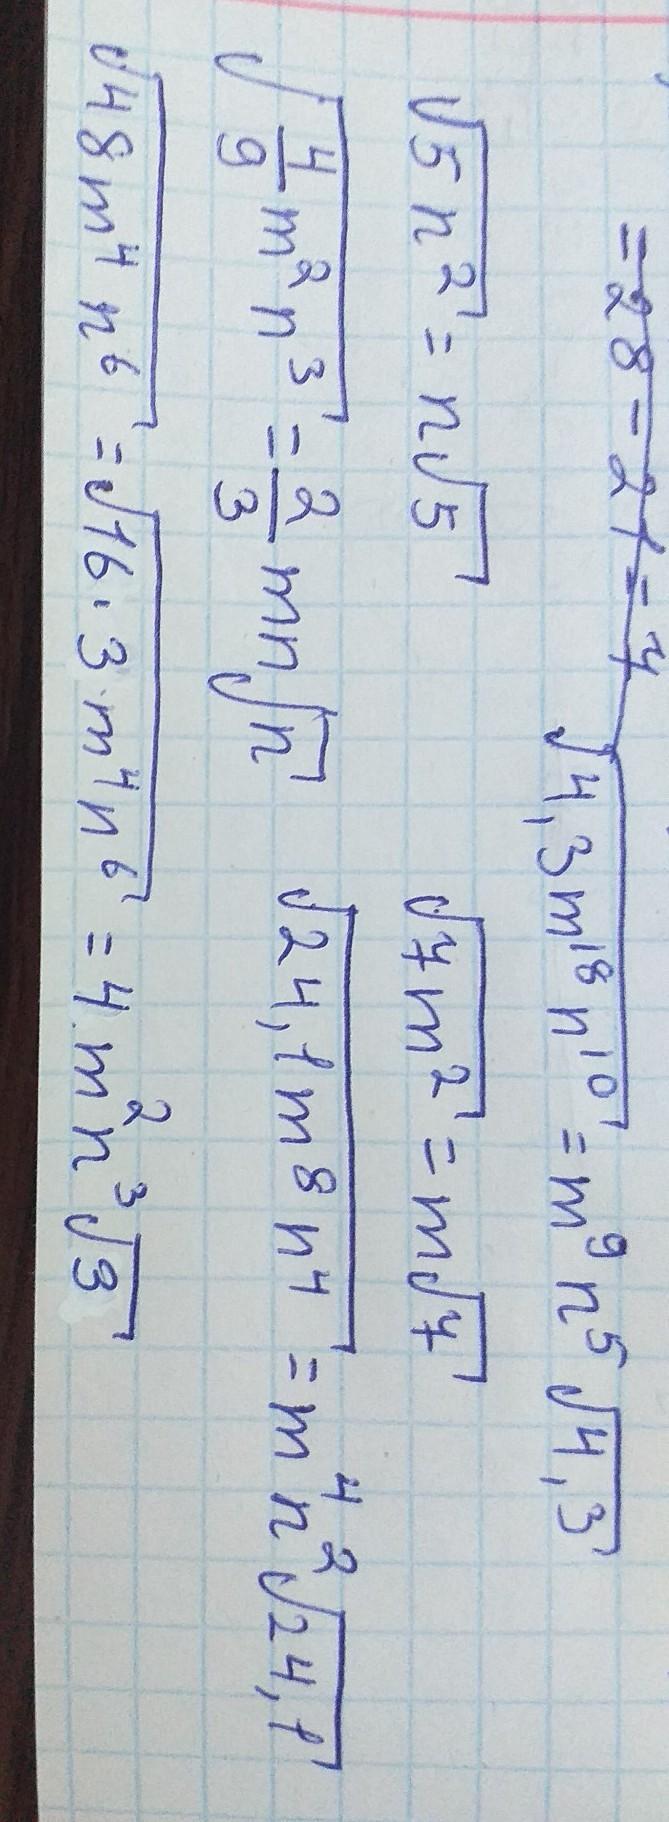 = 28 - 21 = 7
√4,3m¹⁸n¹⁰ = m⁹n⁵√4,3
√5n² = n√5 √7m² = m√7
√4/9 m²n³ = 2/3 mn√n √24,1m⁸n⁴ = m⁴n²√24,1
√48m⁴n⁶ = √16·3·m⁴n⁶ = 4m²n³√3